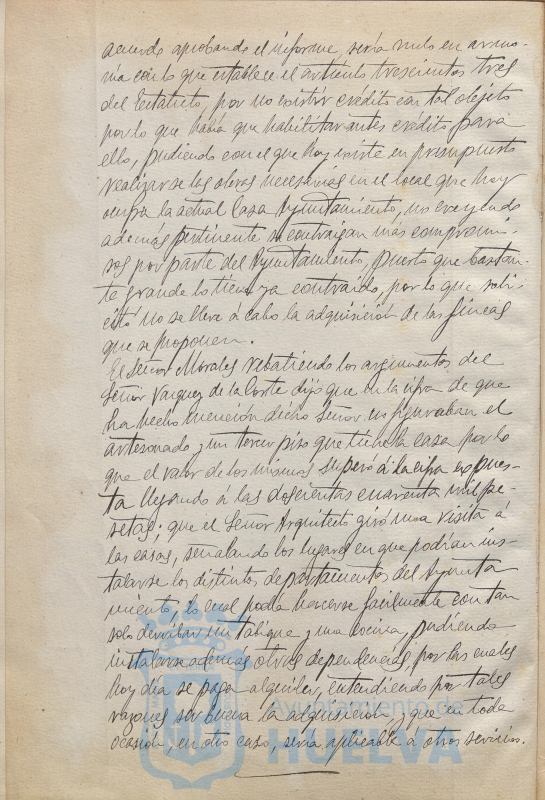 acuerdo aprobando el informe, sería nulo en armo-
nía con lo que establece el artículo trescientos tres
del Estatuto, por no existir crédito con tal objeto
por lo que había que habilitar antes crédito para
ello, pudiendo con el que hoy existe en presupuesto
realizarse las obras necesarias en el local que hoy
ocupa la actual Casa Ayuntamiento, no creyendo
además pertinente se contraigan más compromi-
sos por parte del Ayuntamiento, puesto que bastan-
te grande lo tiene ya contraido, por lo que soli-
citó no se lleve á cabo la adquisición de las fincas
que se proponen.
El Señor Morales rebatiendo los argumentos del
Señor Vazquez de la Corte dijo que en la cifra de que
ha hecho mención dicho Señor no figuraban el
artesonado y un tercer piso que tiene la casa por lo
que el valor de los mismos superó á la cifra expues-
ta llegando a las doscientas cuarenta mil pe-
setas; que el Señor Arquitecto giró una visita á
las casas, señalando los lugares en que podrían ins-
talarse los distintos departamentos del Ayunta
miento, lo cual podía hacerse facilmente con tan
solo derribar un tabique y una cocina, pudiendo
instalarse además otras dependencias por las cuales
hoy día se paga alquiler, entendiendo por tales
razones ser buena la adquisición, y que en toda
ocasión, en otro caso, sería aplicable á otros servicios.
Ayuntamiento de
HUELVA